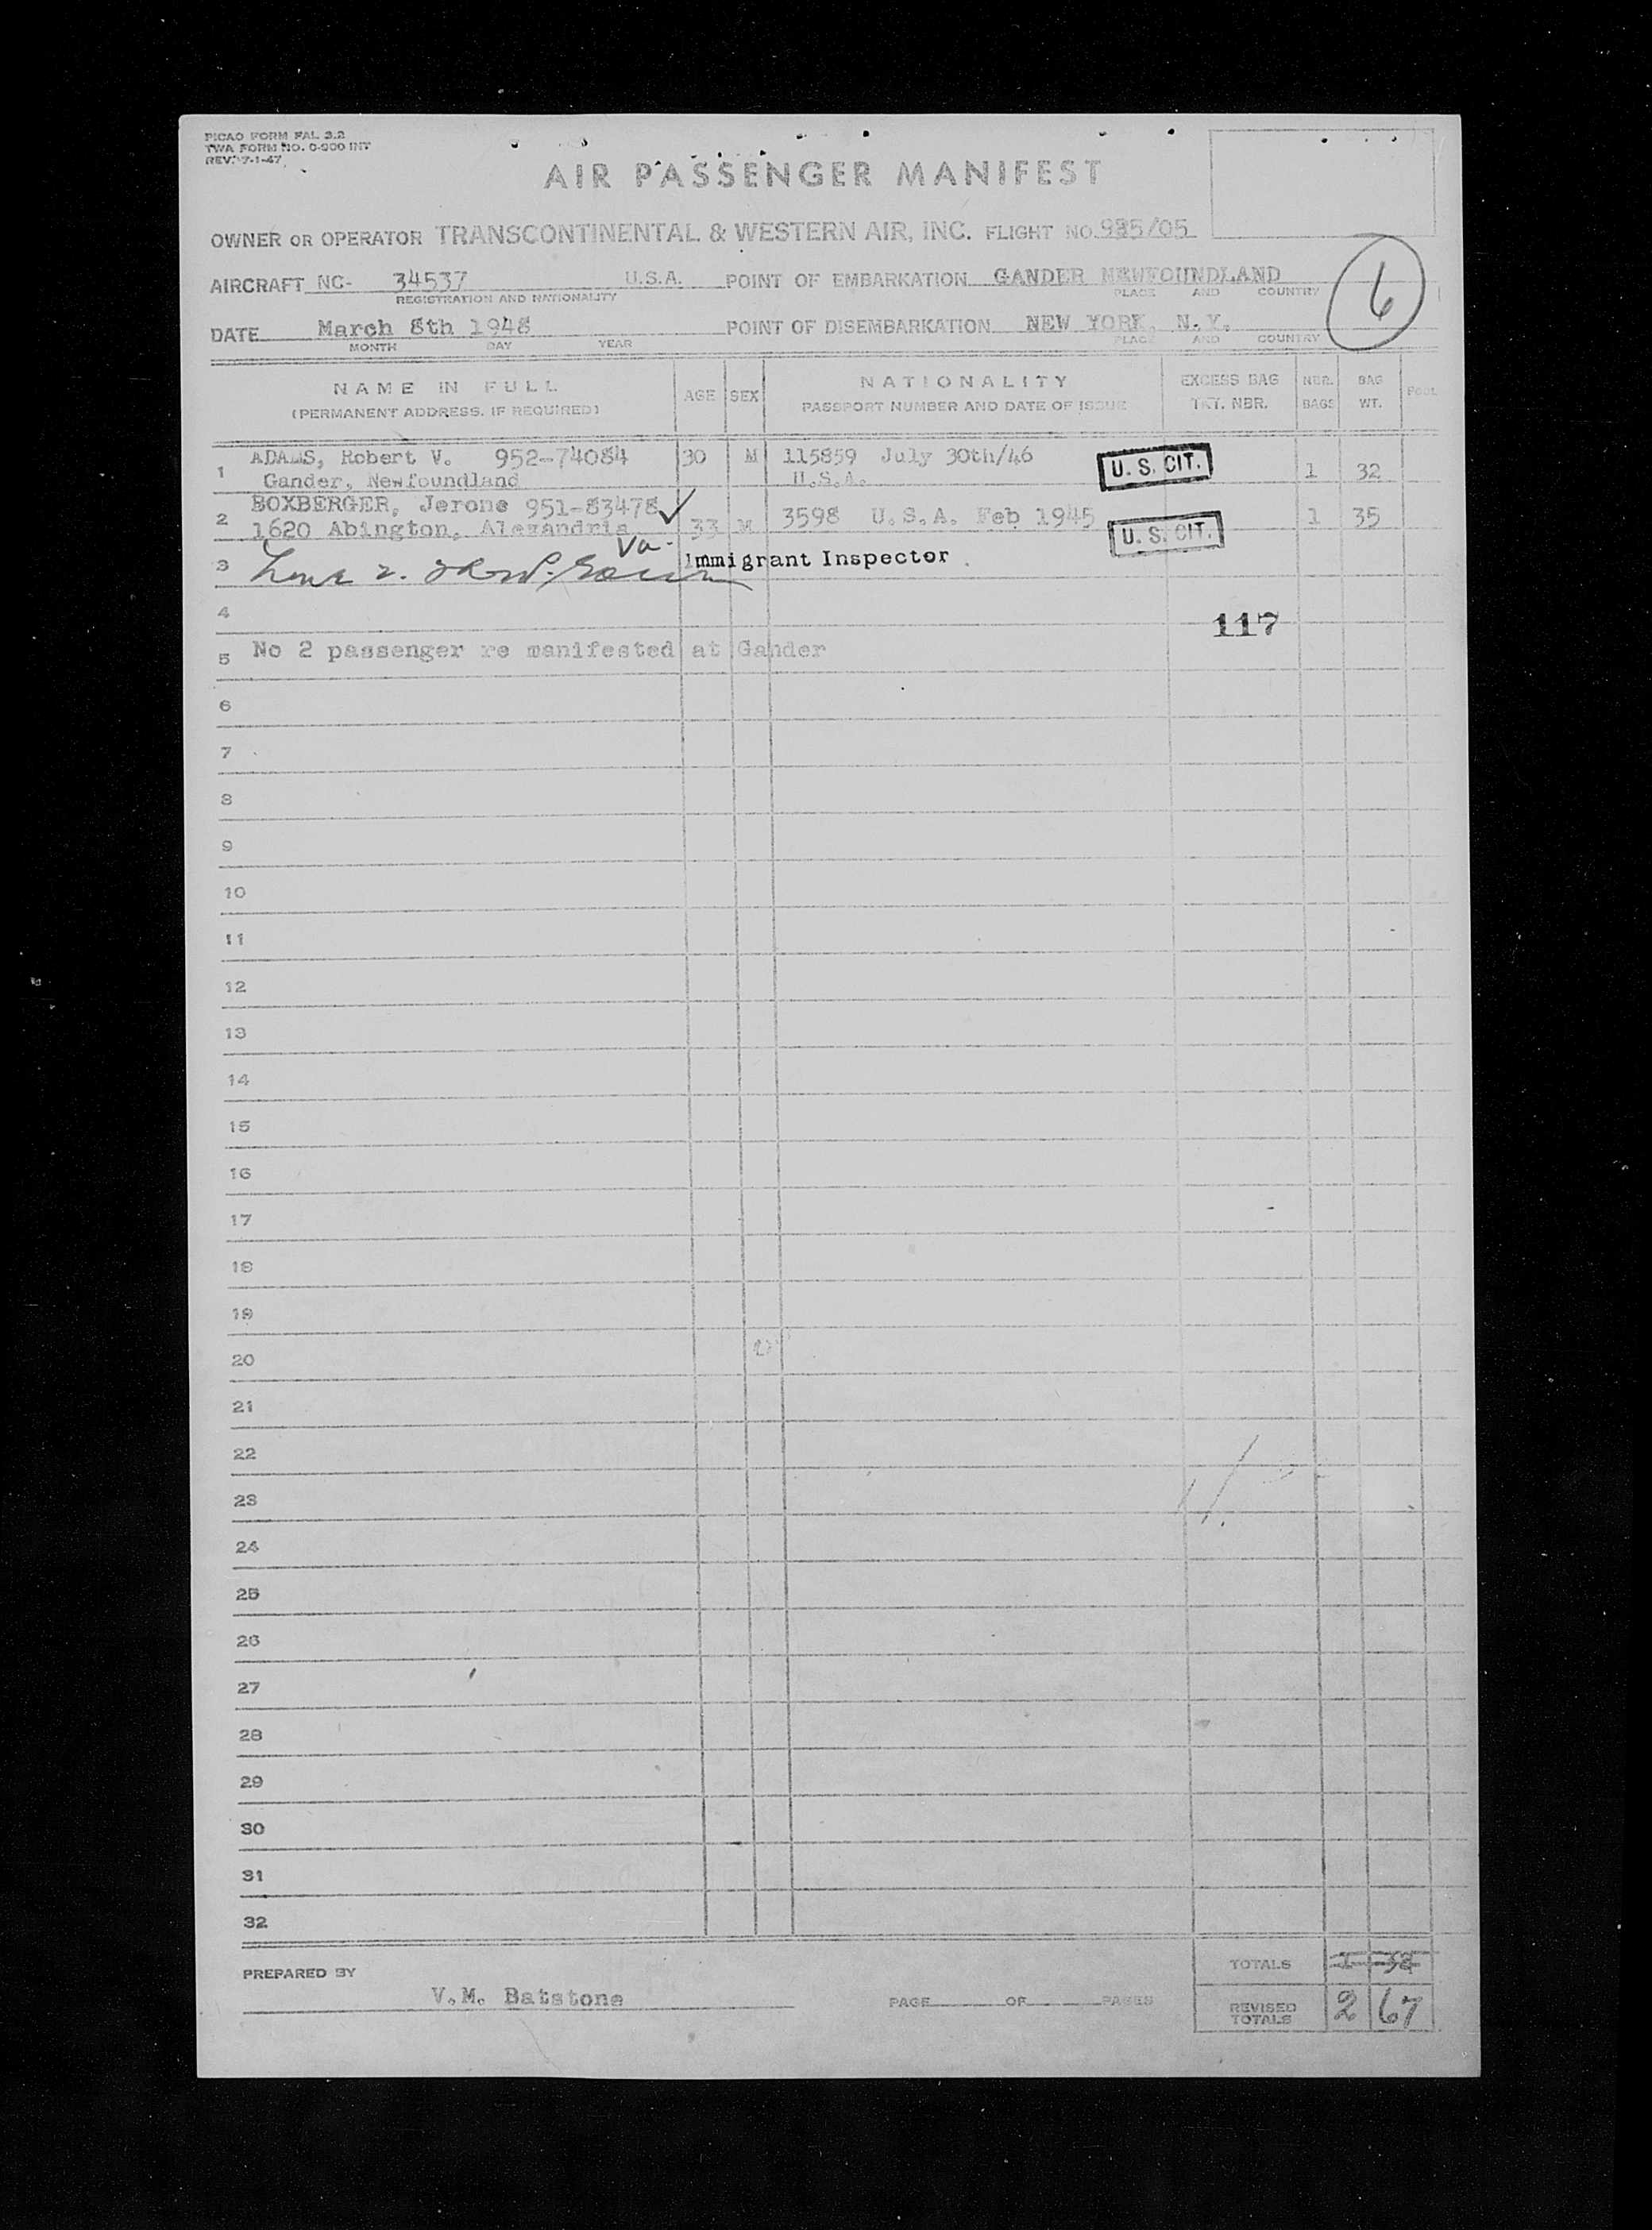 PICAO FORM FAL 3.2
TWA FORM NO. O-900 INT
REV. 7-1-47
AIR PASSENGER MANIFEST
OWNER OR OPERATOR TRANSCONTINENTAL & WESTERN AIR, INC. FLIGHT NO. 925/05
AIRCRAFT NC- 34537 U.S.A. POINT OF EMBARKATION GANDER NEWFOUNDLAND
REGISTRATION AND NATIONALITY PLACE AND COUNTRY
6
DATE March 8th 1948 POINT OF DISEMBARKATION NEW YORK, N.Y.
MONTH DAY YEAR PLACE AND COUNTRY
NAME IN FULL AGE SEX NATIONALITY EXCESS BAG NBR. BAG POOL
(PERMANENT ADDRESS, IF REQUIRED) PASSPORT NUMBER AND DATE OF ISSUE TKT. NBR. BAGS WT.
1 ADAMS, Robert V. 952-74084 30 M 115859 July 30th/46 U. S. CIT. 1 32
Gander, Newfoundland U.S.A.
2 BOXBERGER, Jerone 951-83478 ✓ 33 M 3598 U.S.A. Feb 1945 U. S. CIT. 1 35
1620 Abington, Alexandria
Va.
3 Immigrant Inspector
4 117
5 No 2 passenger re manifested at Gander
6
7
8
9
10
11
12
13
14
15
16
17
18
19
20
21
22
23
24
25
26
27
28
29
30
31
32
PREPARED BY TOTALS 1 32
V.M. Batstone PAGE OF PAGES REVISED TOTALS 2 67